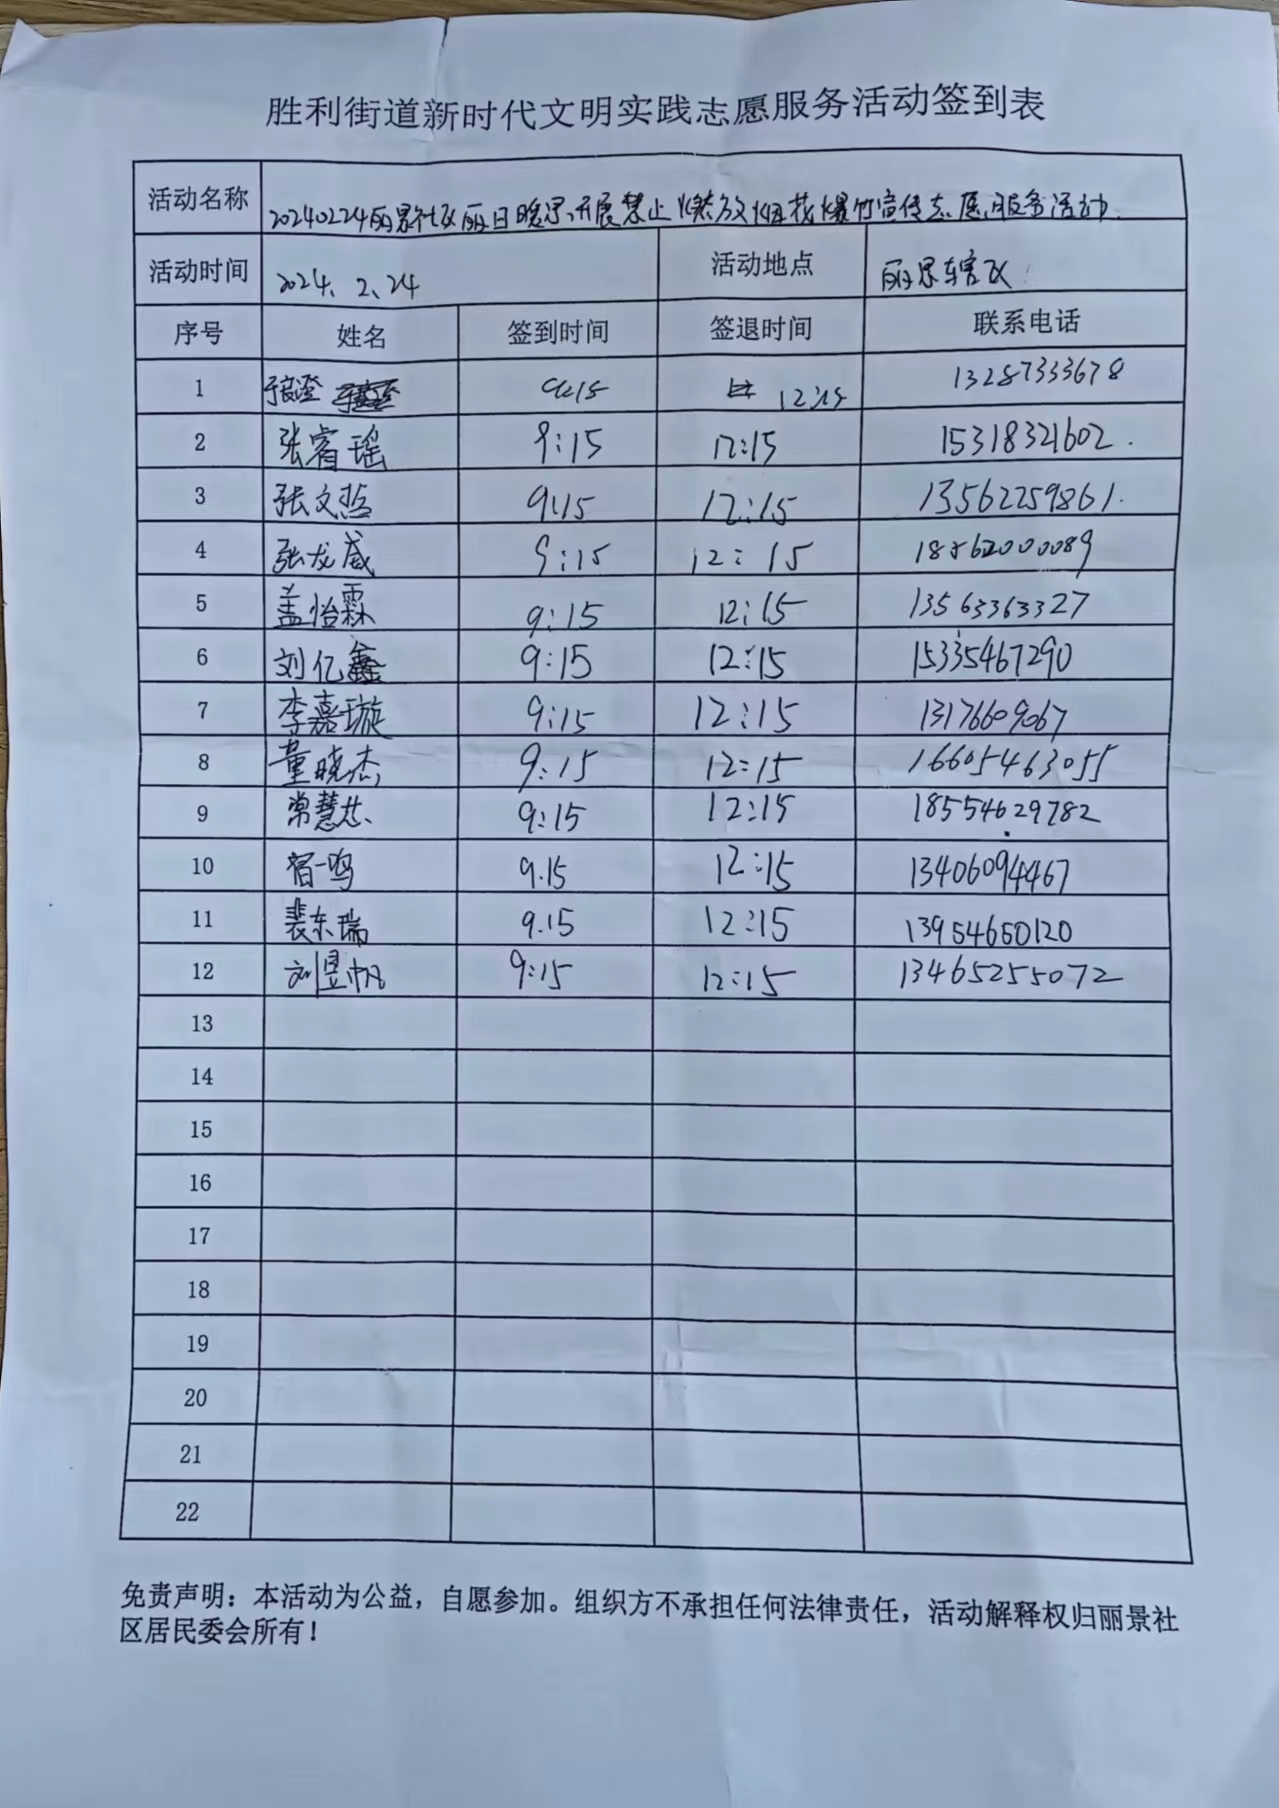 胜利街道新时代文明实践志愿服务活动签到表
活动名称 20240224丽景社区丽日暖景,开展禁止燃放烟花爆竹宣传志愿服务活动.
活动时间 2024、2、24 活动地点 丽景辖区
序号 姓名 签到时间 签退时间 联系电话
1 9:15 12:15 13287333678
2 张睿瑶 9:15 12:15 15318321602.
3 张文哲 9:15 12:15 13562259861.
4 张龙威 9:15 12:15 18562000089
5 盖怡霖 9:15 12:15 13563363327
6 刘亿鑫 9:15 12:15 15335467290
7 李嘉璇 9:15 12:15 13176609067
8 董晓杰 9:15 12:15 16605463055
9 常慧芯 9:15 12:15 18554629782
10 宿一鸣 9.15 12:15 13406094467
11 裴东瑞 9.15 12:15 13954650120
12 刘昱帆 9:15 12:15 13465255072
13
14
15
16
17
18
19
20
21
22
免责声明：本活动为公益，自愿参加。组织方不承担任何法律责任，活动解释权归丽景社
区居民委会所有！